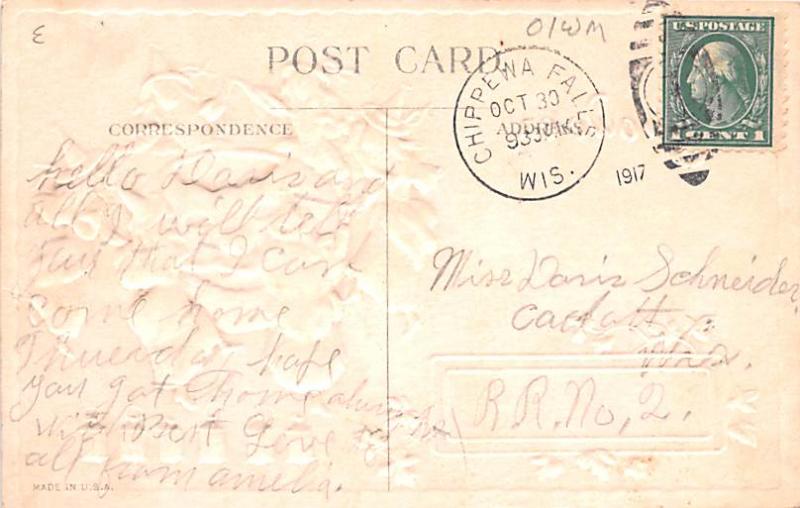 ε
01WM
POST CARD
U.S. POSTAGE
1 CENT 1
CHIPPEWA FALLS
OCT 30
930
WIS.
1917
CORRESPONDENCE
ADDRESS
hello Doris and
all I will tell
you that I can
come home
Thursday hope
you got home
with Best Love to
all from amelia.
Miss Doris Schneider
Cadott
Wis.
R.R. No, 2.
MADE IN U.S.A.